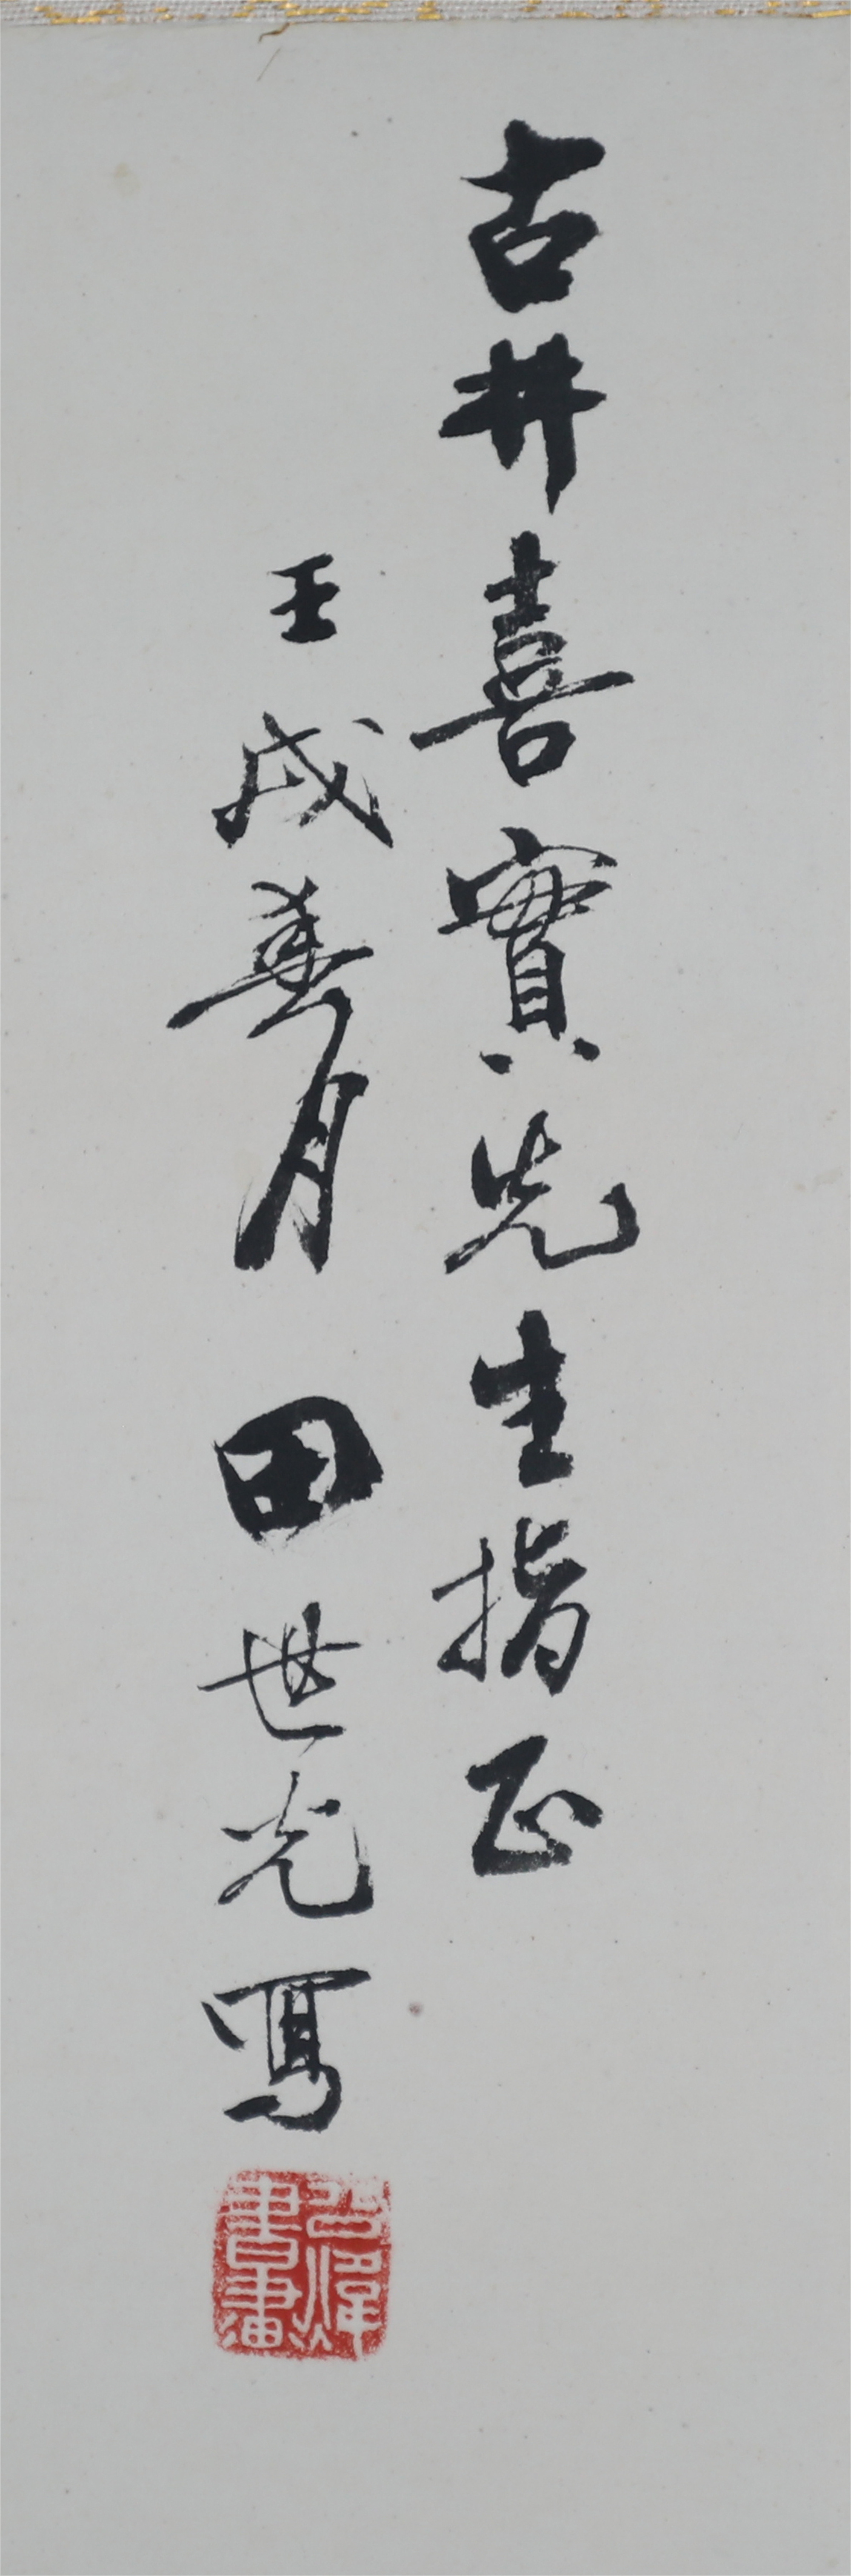 古井喜實先生指正
壬戌春月 田世光寫
公煒
書畫